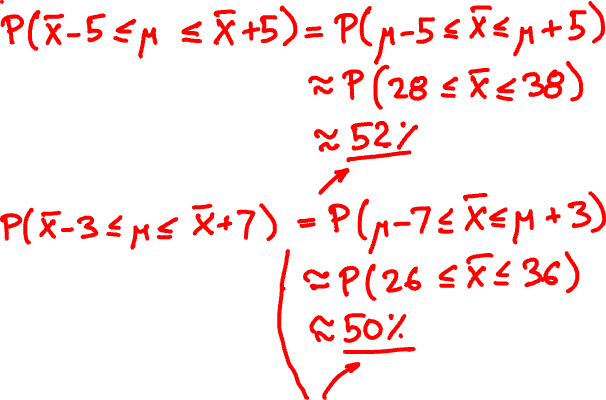 P(x̄-5≤μ ≤x̄+5)=P(μ-5≤x̄≤μ+5)
≈P(28≤x̄≤38)
≈52%
P(x̄-3≤μ≤x̄+7) =P(μ-7≤x̄≤μ+3)
≈P(26≤x̄≤36)
≈50%